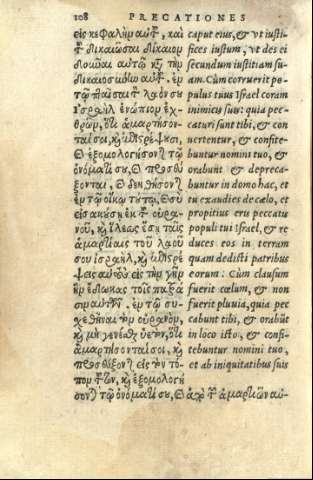 108 PRECATIONES
εἰς κεφαλὴν αὐτοῦ, καὶ
δικαιῶσαι δίκαιον
δοῦναι αὐτῷ κατὰ τὴν
δικαιοσύνην αὐτοῦ. ἐν
τῷ πταῖσαι τὸν λαόν σου
Ισραὴλ ἐνώπιον ἐχ
θρῶν, ὅτι ἁμαρτήσον
ταί σοι, καὶ ἐπιστρέψουσι,
καὶ ἐξομολογήσονται τῷ
ὀνόματί σου, καὶ προσεύ
ξονται, καὶ δεηθήσονται
ἐν τῷ οἴκῳ τούτῳ, καὶ σὺ
εἰσακούσῃ ἐκ τοῦ οὐρα
νοῦ, καὶ ἵλεως ἔσῃ ταῖς
ἁμαρτίαις τοῦ λαοῦ
σου ἰσραὴλ, καὶ ἐπιστρέ
ψεις αὐτοὺς εἰς τὴν γῆν
ἣν ἔδωκας τοῖς πατρά
σιν αὐτῶν. ἐν τῷ συ
σχεθῆναι τὸν οὐρανὸν,
καὶ μὴ γενέσθαι ὑετὸν, ὅτι
ἁμαρτήσονταί σοι, καὶ
προσεύξονται εἰς τὸν τό
πον τοῦτον, καὶ ἐξομολογή
σονται τῷ ὀνόματί σου, καὶ ἀπὸ τῶν ἁμαρτιῶν αὐ-
caput eius, & vt iusti-
fices iustum, vt des ei
secundum iustitiam su-
am. Cum corruerit po-
pulus tuus Israel coram
inimicis suis: quia pec-
caturi sunt tibi, & con
uertentur, & confite-
buntur nomini tuo, et
orabunt & depreca-
buntur in domo hac, et
tu exaudies de cælo, et
propitius eru peccatu
populi tui Israel, & re
duces eos in terram
quam dedisti patribus
eorum: Cùm clausum
fuerit cœlum, & non
fuerit pluuia, quia pec
cabunt tibi, & orabũt
in loco isto, & confi-
tebuntur nomini tuo,
et ab iniquitatibus suis